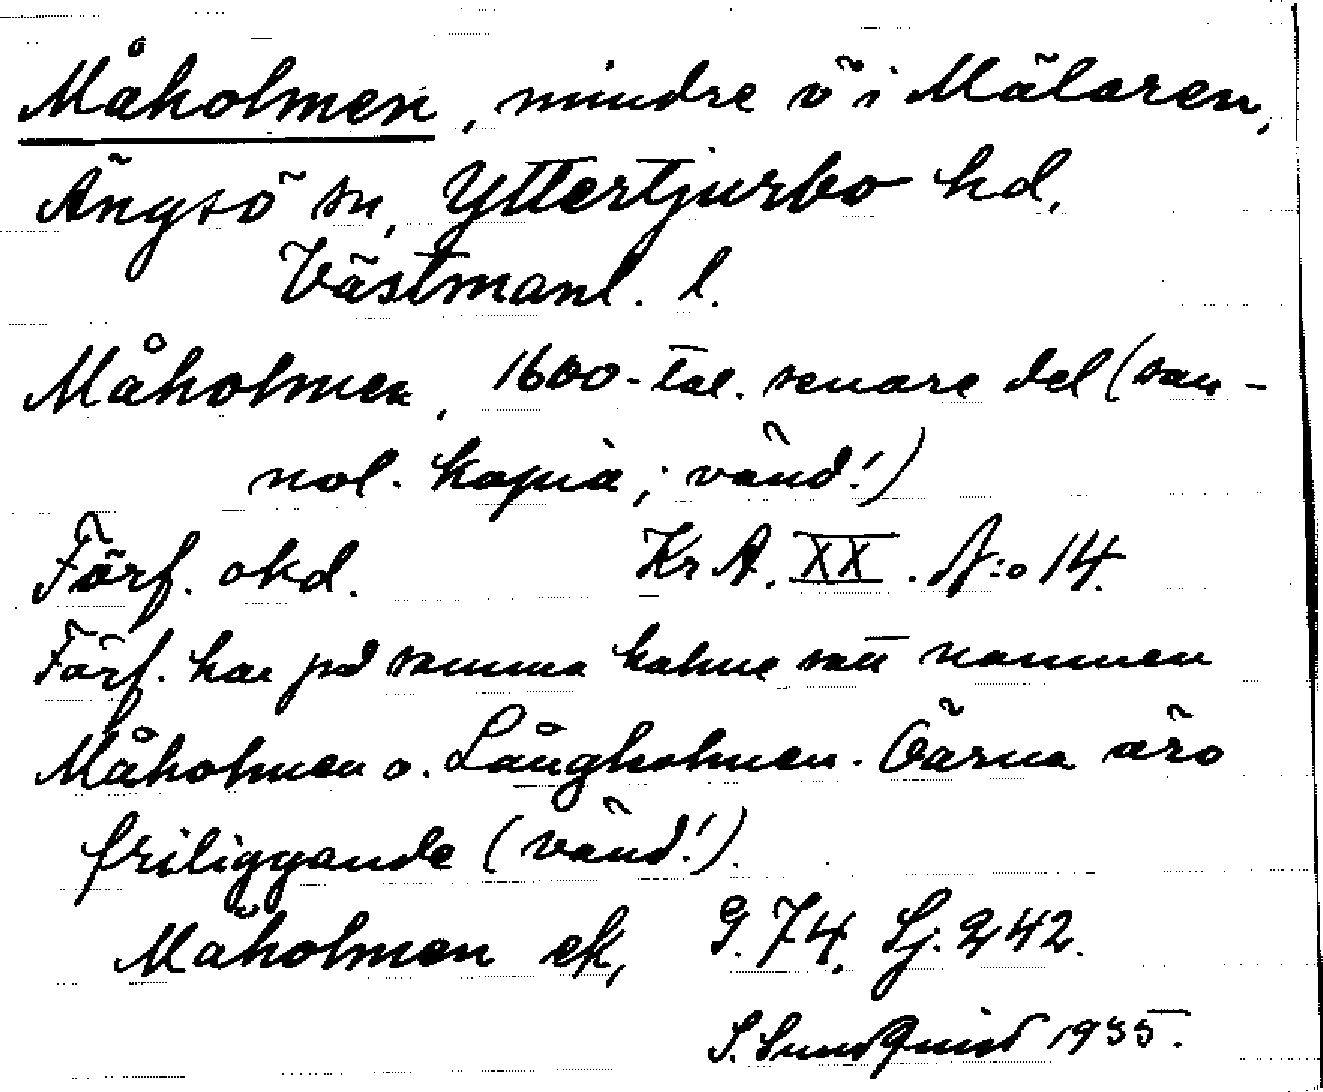 Måholmen, mindre ö i Mälaren,
Ängsö sn, Yttertjurbo hd,
Västmanl. l.
Måholmen, 1600-tal. senare del (san-
nol. kopia; vänd!)
Förf. okd. Kr A. XX. N:o 14.
Förf. har på samma holme satt namnen
Måholmen o. Långholmen. Öarna äro
friliggande (vänd!).
Måholmen ek, G. 74, Sj. 242.
S. Sundquist 1935.